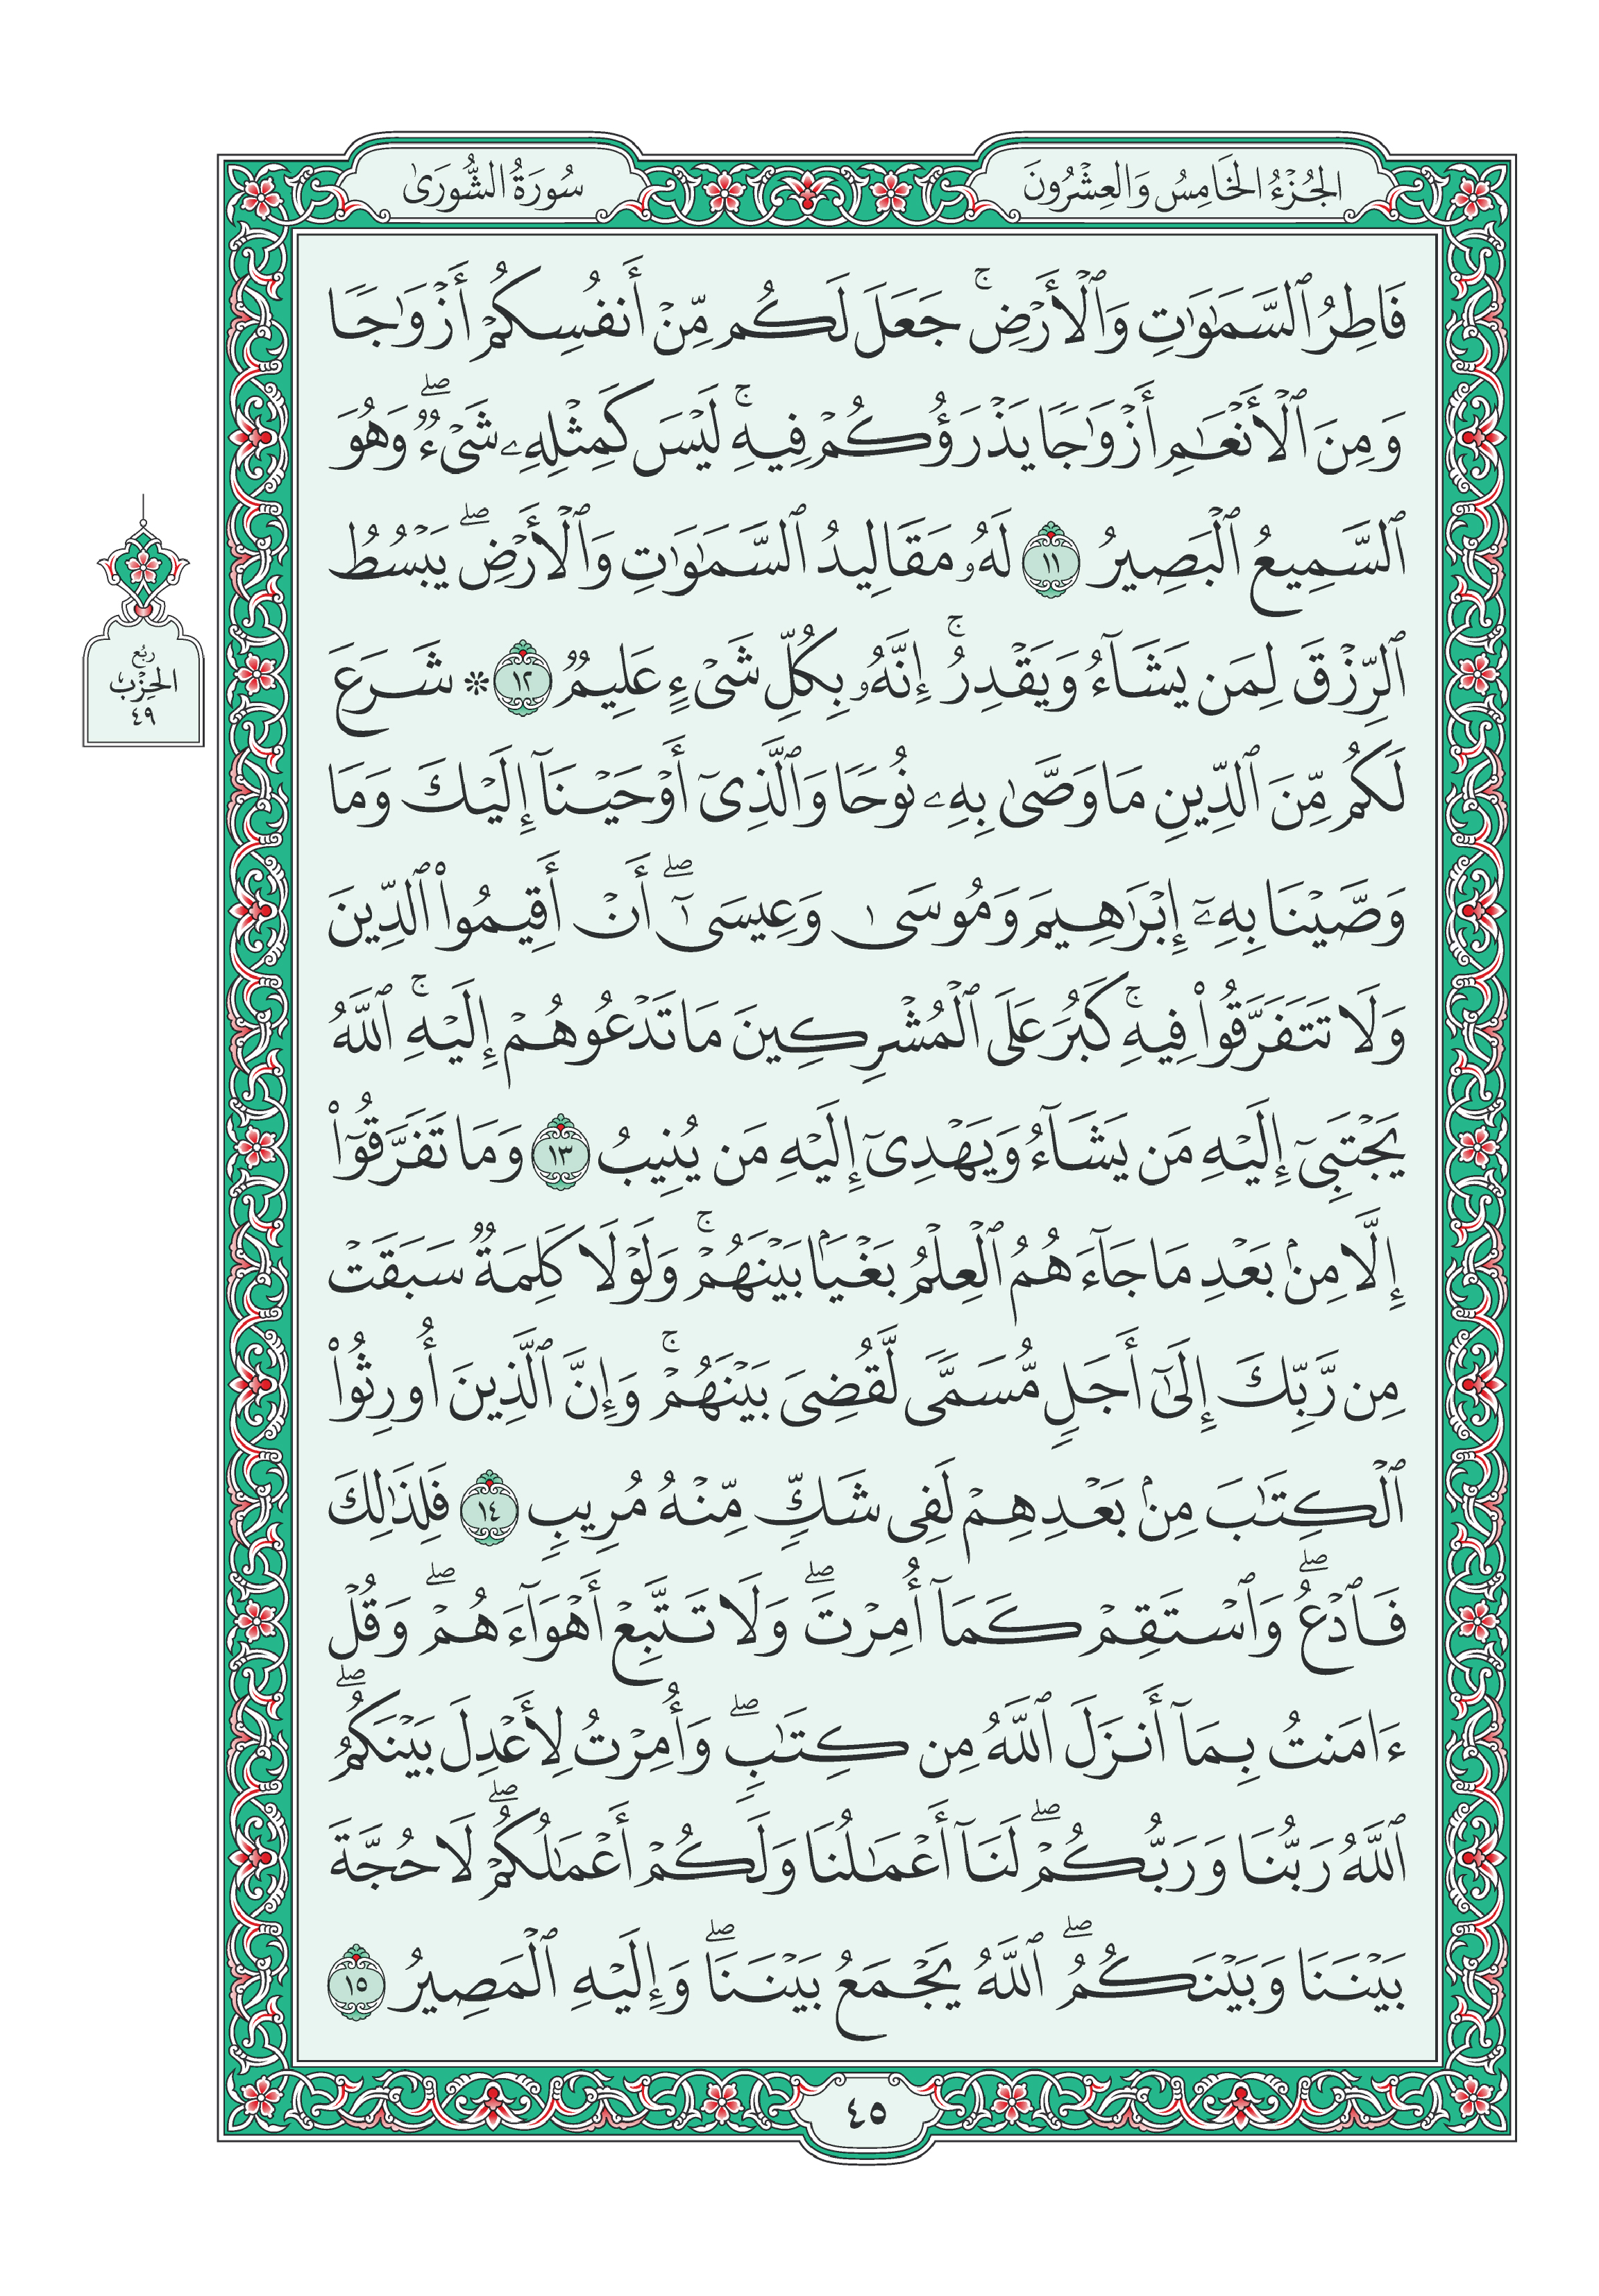 الجُزْءُ الخَامِسُ وَالعِشْرُونَ
سُورَةُ الشُّورَىٰ
فَاطِرُ ٱلسَّمَٰوَٰتِ وَٱلۡأَرۡضِۚ جَعَلَ لَكُم مِّنۡ أَنفُسِكُمۡ أَزۡوَٰجٗا
وَمِنَ ٱلۡأَنۡعَٰمِ أَزۡوَٰجٗا يَذۡرَؤُكُمۡ فِيهِۚ لَيۡسَ كَمِثۡلِهِۦ شَيۡءٞۖ وَهُوَ
ٱلسَّمِيعُ ٱلۡبَصِيرُ ١١ لَهُۥ مَقَالِيدُ ٱلسَّمَٰوَٰتِ وَٱلۡأَرۡضِۖ يَبۡسُطُ
ٱلرِّزۡقَ لِمَن يَشَآءُ وَيَقۡدِرُۚ إِنَّهُۥ بِكُلِّ شَيۡءٍ عَلِيمٞ ١٢ ۞ شَرَعَ
لَكُم مِّنَ ٱلدِّينِ مَا وَصَّىٰ بِهِۦ نُوحٗا وَٱلَّذِيٓ أَوۡحَيۡنَآ إِلَيۡكَ وَمَا
وَصَّيۡنَا بِهِۦٓ إِبۡرَٰهِيمَ وَمُوسَىٰ وَعِيسَىٰٓۖ أَنۡ أَقِيمُواْ ٱلدِّينَ
وَلَا تَتَفَرَّقُواْ فِيهِۚ كَبُرَ عَلَى ٱلۡمُشۡرِكِينَ مَا تَدۡعُوهُمۡ إِلَيۡهِۚ ٱللَّهُ
يَجۡتَبِيٓ إِلَيۡهِ مَن يَشَآءُ وَيَهۡدِيٓ إِلَيۡهِ مَن يُنِيبُ ١٣ وَمَا تَفَرَّقُوٓاْ
إِلَّا مِنۢ بَعۡدِ مَا جَآءَهُمُ ٱلۡعِلۡمُ بَغۡيَۢا بَيۡنَهُمۡۚ وَلَوۡلَا كَلِمَةٞ سَبَقَتۡ
مِن رَّبِّكَ إِلَىٰٓ أَجَلٖ مُّسَمّٗى لَّقُضِيَ بَيۡنَهُمۡۚ وَإِنَّ ٱلَّذِينَ أُورِثُواْ
ٱلۡكِتَٰبَ مِنۢ بَعۡدِهِمۡ لَفِي شَكّٖ مِّنۡهُ مُرِيبٖ ١٤ فَلِذَٰلِكَ
فَٱدۡعُۖ وَٱسۡتَقِمۡ كَمَآ أُمِرۡتَۖ وَلَا تَتَّبِعۡ أَهۡوَآءَهُمۡۖ وَقُلۡ
ءَامَنتُ بِمَآ أَنزَلَ ٱللَّهُ مِن كِتَٰبٖۖ وَأُمِرۡتُ لِأَعۡدِلَ بَيۡنَكُمُۖ
ٱللَّهُ رَبُّنَا وَرَبُّكُمۡۖ لَنَآ أَعۡمَٰلُنَا وَلَكُمۡ أَعۡمَٰلُكُمۡۖ لَا حُجَّةَ
بَيۡنَنَا وَبَيۡنَكُمُۖ ٱللَّهُ يَجۡمَعُ بَيۡنَنَاۖ وَإِلَيۡهِ ٱلۡمَصِيرُ ١٥
رُبْع
الحِزْب
٤٩
٤٥